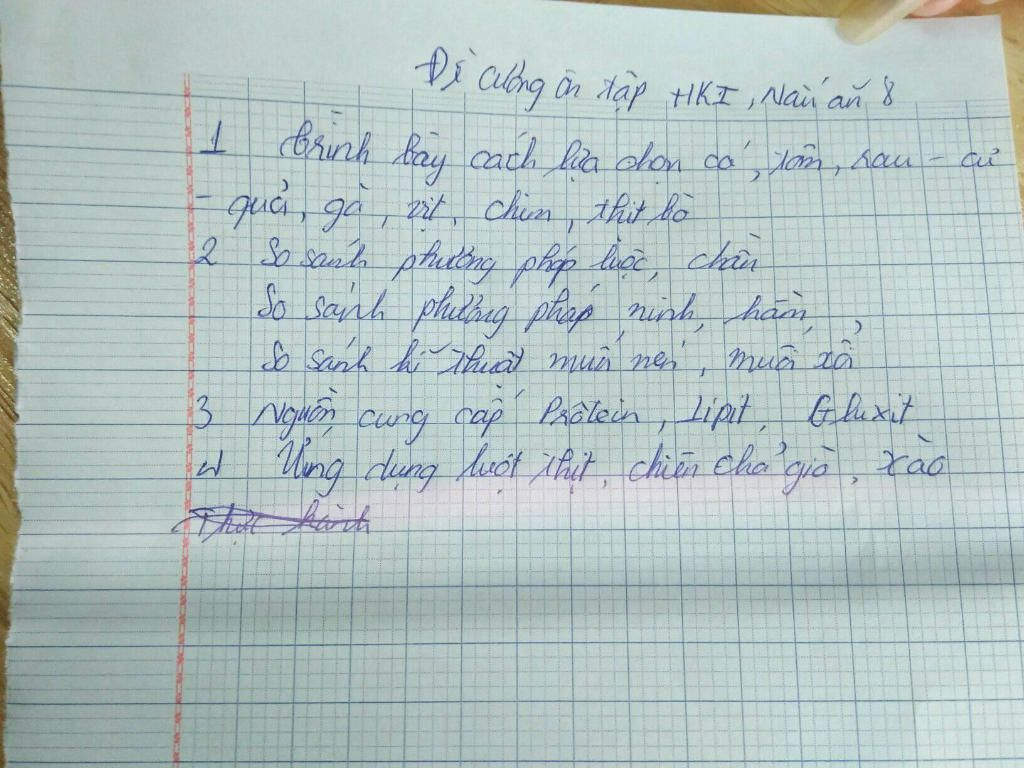 Đề cương ôn tập HKI, Nấu ăn 8
1 trình bày cách lựa chọn cá, tôm, rau - củ
- quả, gà, vịt, chim, thịt bò
2 So sánh phương pháp luộc, chần
So sánh phương pháp ninh, hầm
So sánh kĩ thuật muối nén, muối xổi
3 Nguồn cung cấp Prôtein, Lipit, Gluxit
4 Ứng dụng luột thịt, chiên chả giò, xào